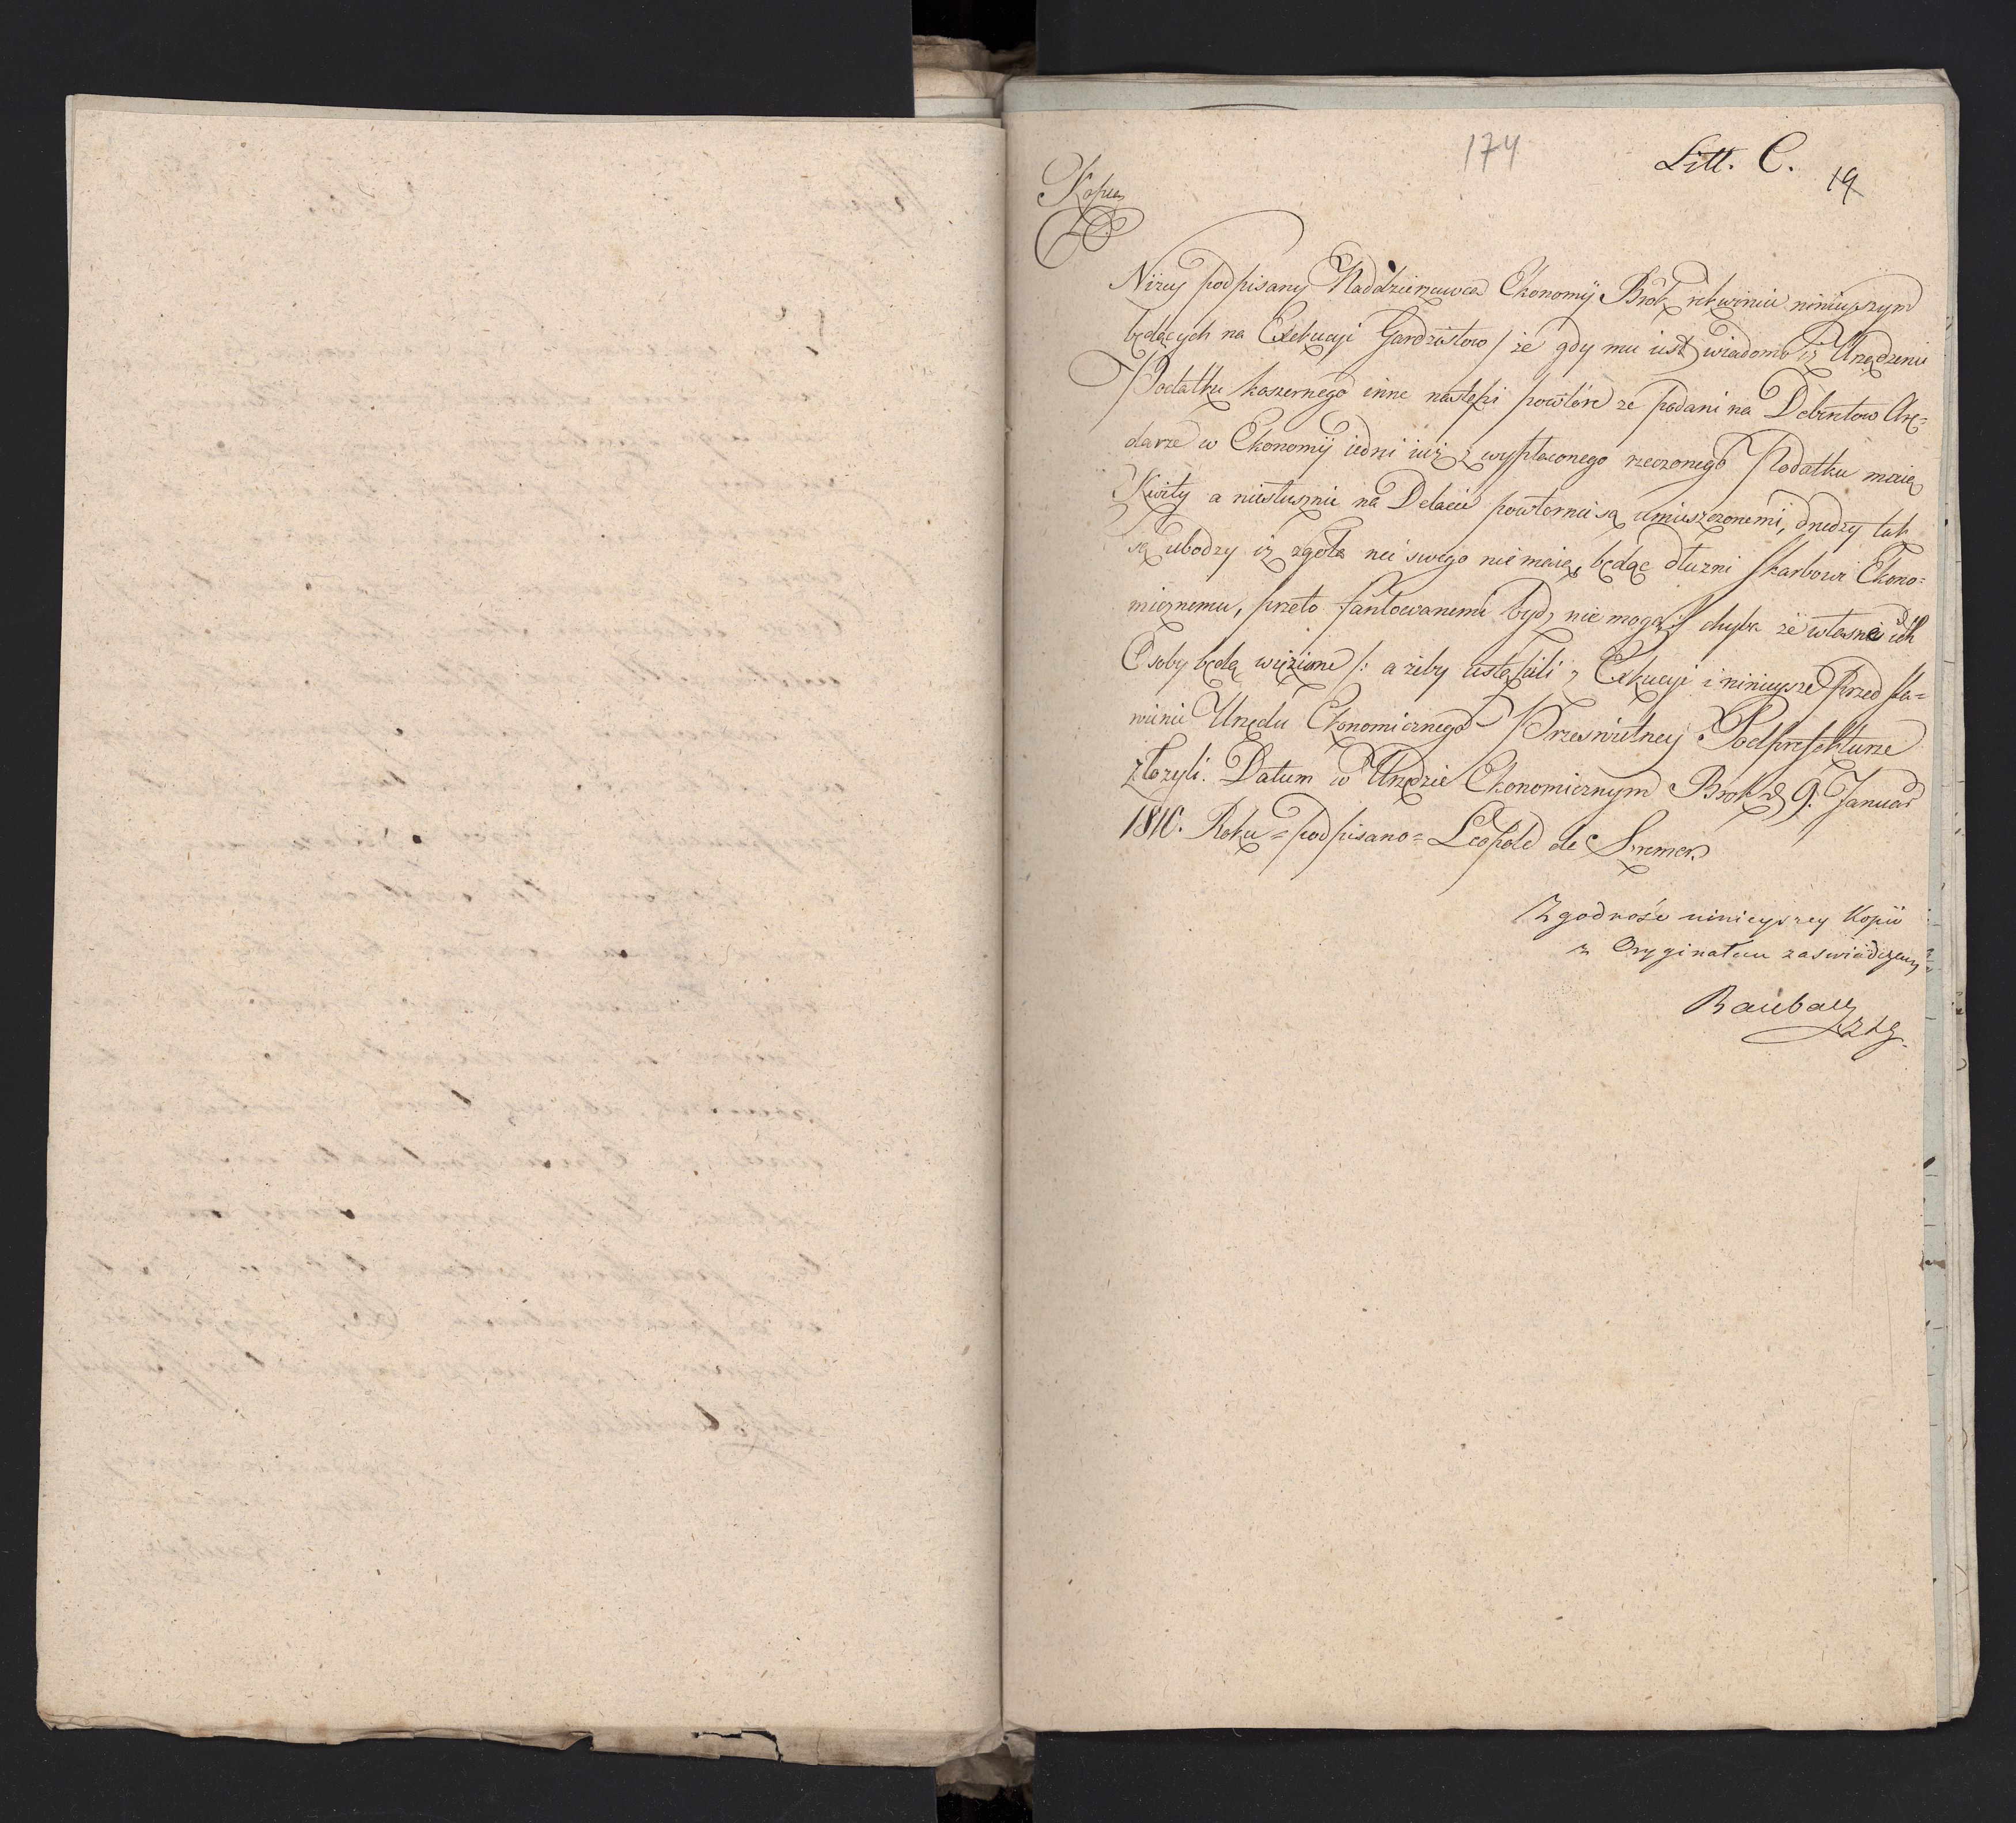 174
Litt. C.
19
Kopia
Niżey podpisany Naddzierżawca Ekonomij Brok rekwiruie ninieyszym
będących na Exekucyi Gardzistow / że gdy mu iest wiadomo iż Urządzenie
Podatku koszernego inne nastąpi powtóre ze podani na Debentow Arę=
darze w Ekonomij iedni iuż z wypłaconego rzeczonego Podatku maią
Kwity a niesłusznie na Delacie powtornie są umieszczonemi, drudzy tak
są ubodzy iż zgoła nic swego nie maią, będąc dłużni skarbowi Ekono=
micznemu, przeto fantowanemi bydź nie mogą chyba że własne ich
Osoby będą więzione /: a żeby ustąpili z Exkucyi i ninieysze Przedsta=
wienie Urzędu Ekonomicznego Prześwietney Podprefekturze
złożyli. Datum w Urzędzie Ekonomicznym Brok d 9. Januar
1810. Roku = podpisano = Leopold de Szremer
Zgodność ninieyszey Kopii
z Oryginałem zaświadczam